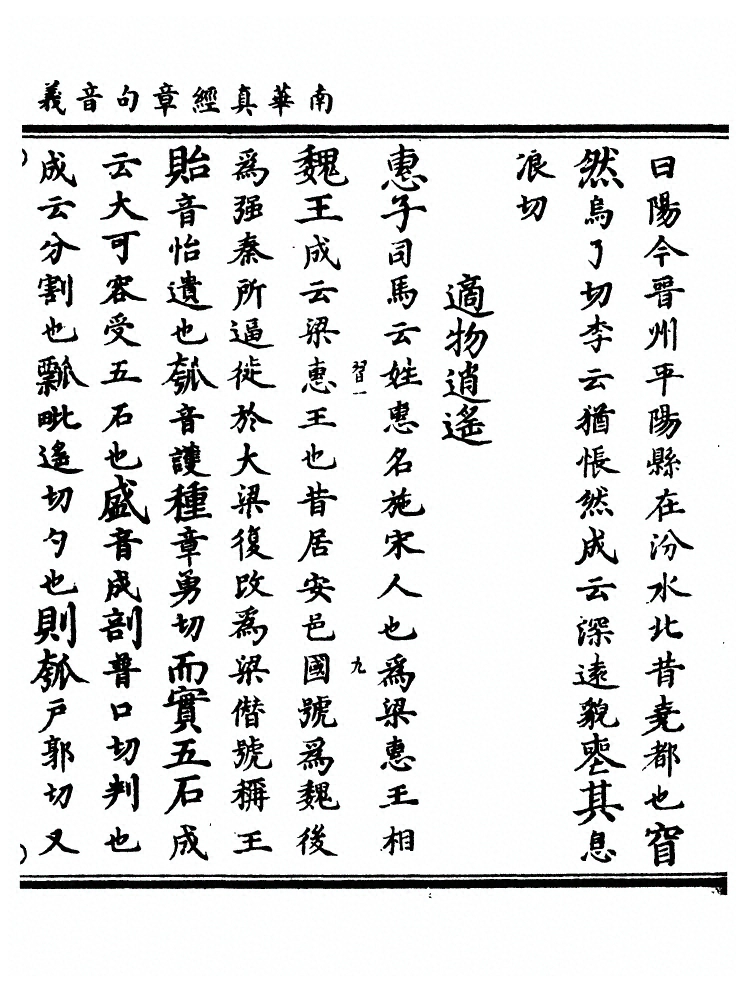 南華真經章句音義
曰陽今晉州平陽縣在汾水北昔堯都也窅
然烏了切李云猶悵然成云深遠貌喪其息
浪切
適物逍遙
惠子司馬云姓惠名施宋人也爲梁惠王相
習一
九
魏王成云梁惠王也昔居安邑國號爲魏後
爲强秦所逼徙於大梁復改爲梁僣號稱王
貽音怡遺也瓠音護種章勇切而實五石成
云大可容受五石也盛音成剖普口切判也
成云分割也瓢毗遙切勺也則瓠戶郭切又